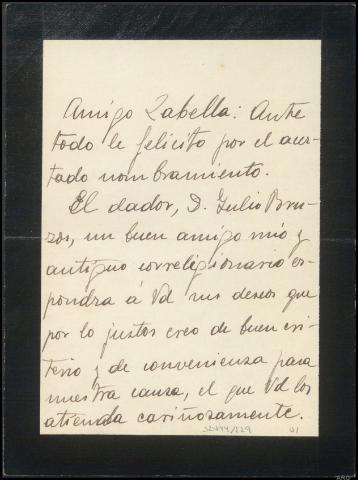 Amigo Zabella: Ante
todo le felicito por el acer-
tado nombramiento.
El dador, D. Julio Bru-
zos, un buen amigo mio y
antiguo correligionario es-
pondra á Vd sus deseos que
por lo justos creo de buen cri-
terio y de convenienza para
nuestra causa, el que Vd los
atienda cariñosamente.